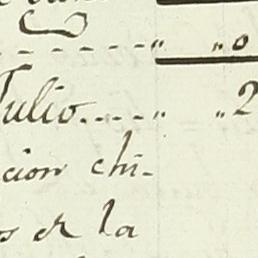 " " 0
Julio..... " " 2
cion chi-
s de la